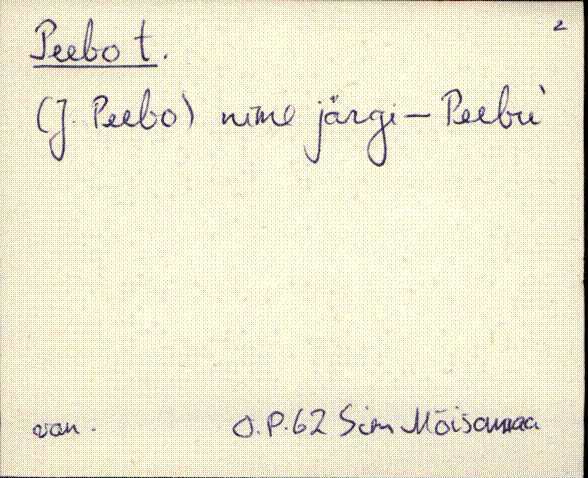 2
Peebo t.
(J. Peebo) nime järgi – Peebu
van. O.P.62 Sim Mõisamaa